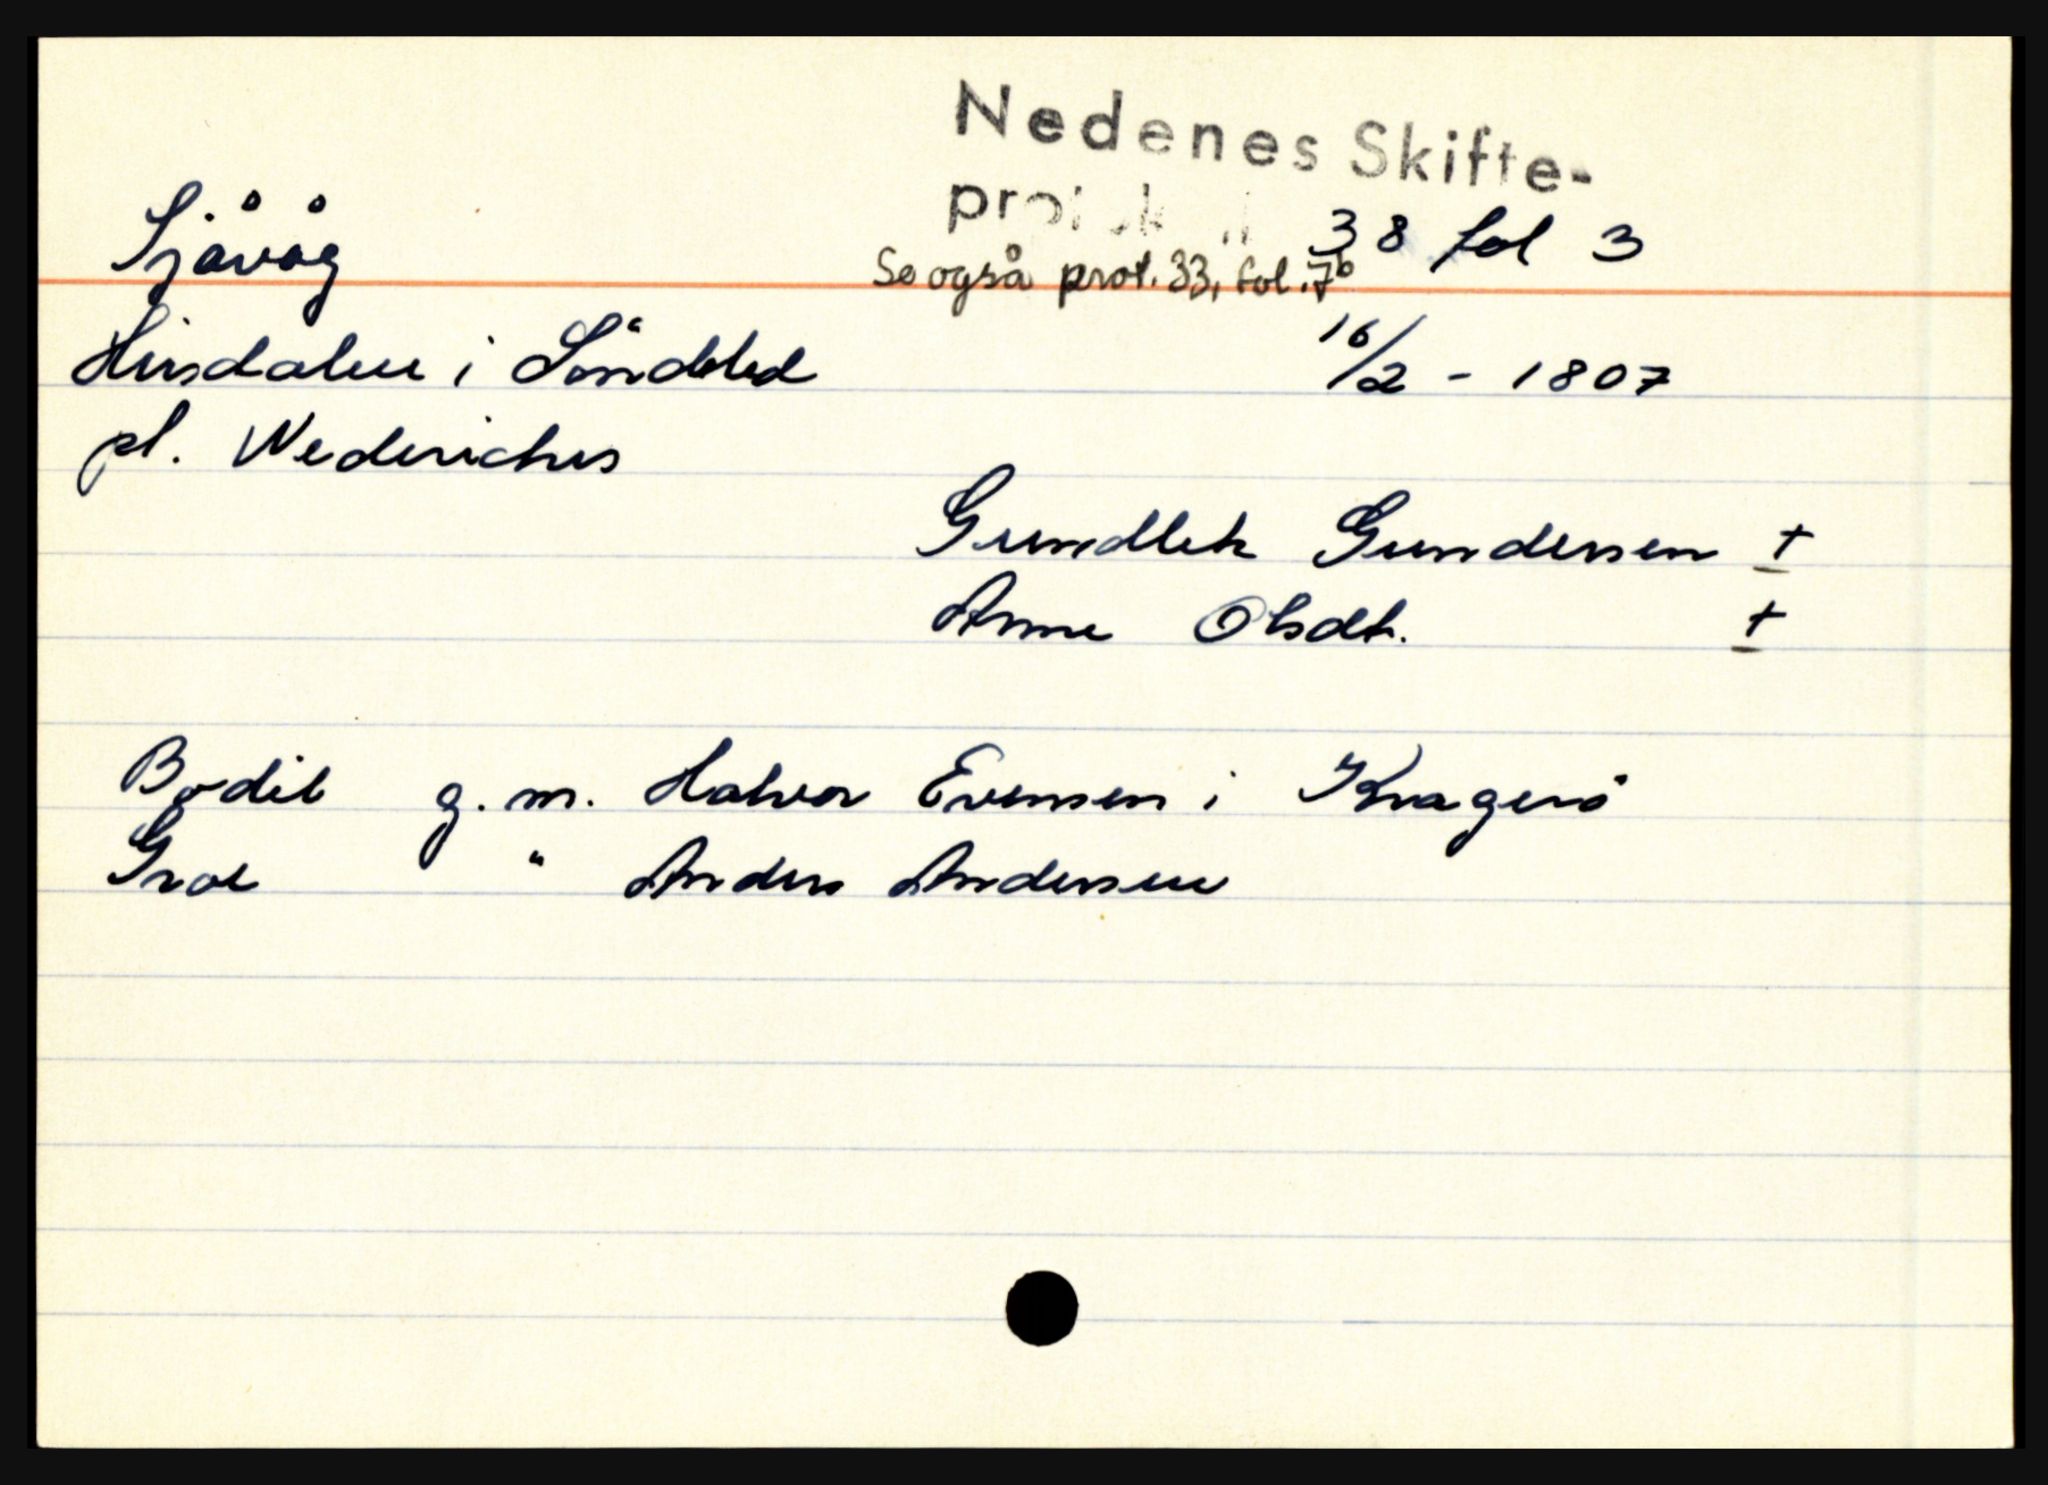 Nedenes Skifte-
protokoll 38 fol 3
Sjåvåg
Se også prot. 33, fol. 7b
i Söndeled 16/2 - 1807
pl. Wederichus
Gundlek Gundersen †
Anne Olsdt. †
Bodil g. m. Halvor Evensen i Kragerö
Groe " Anders Andersen